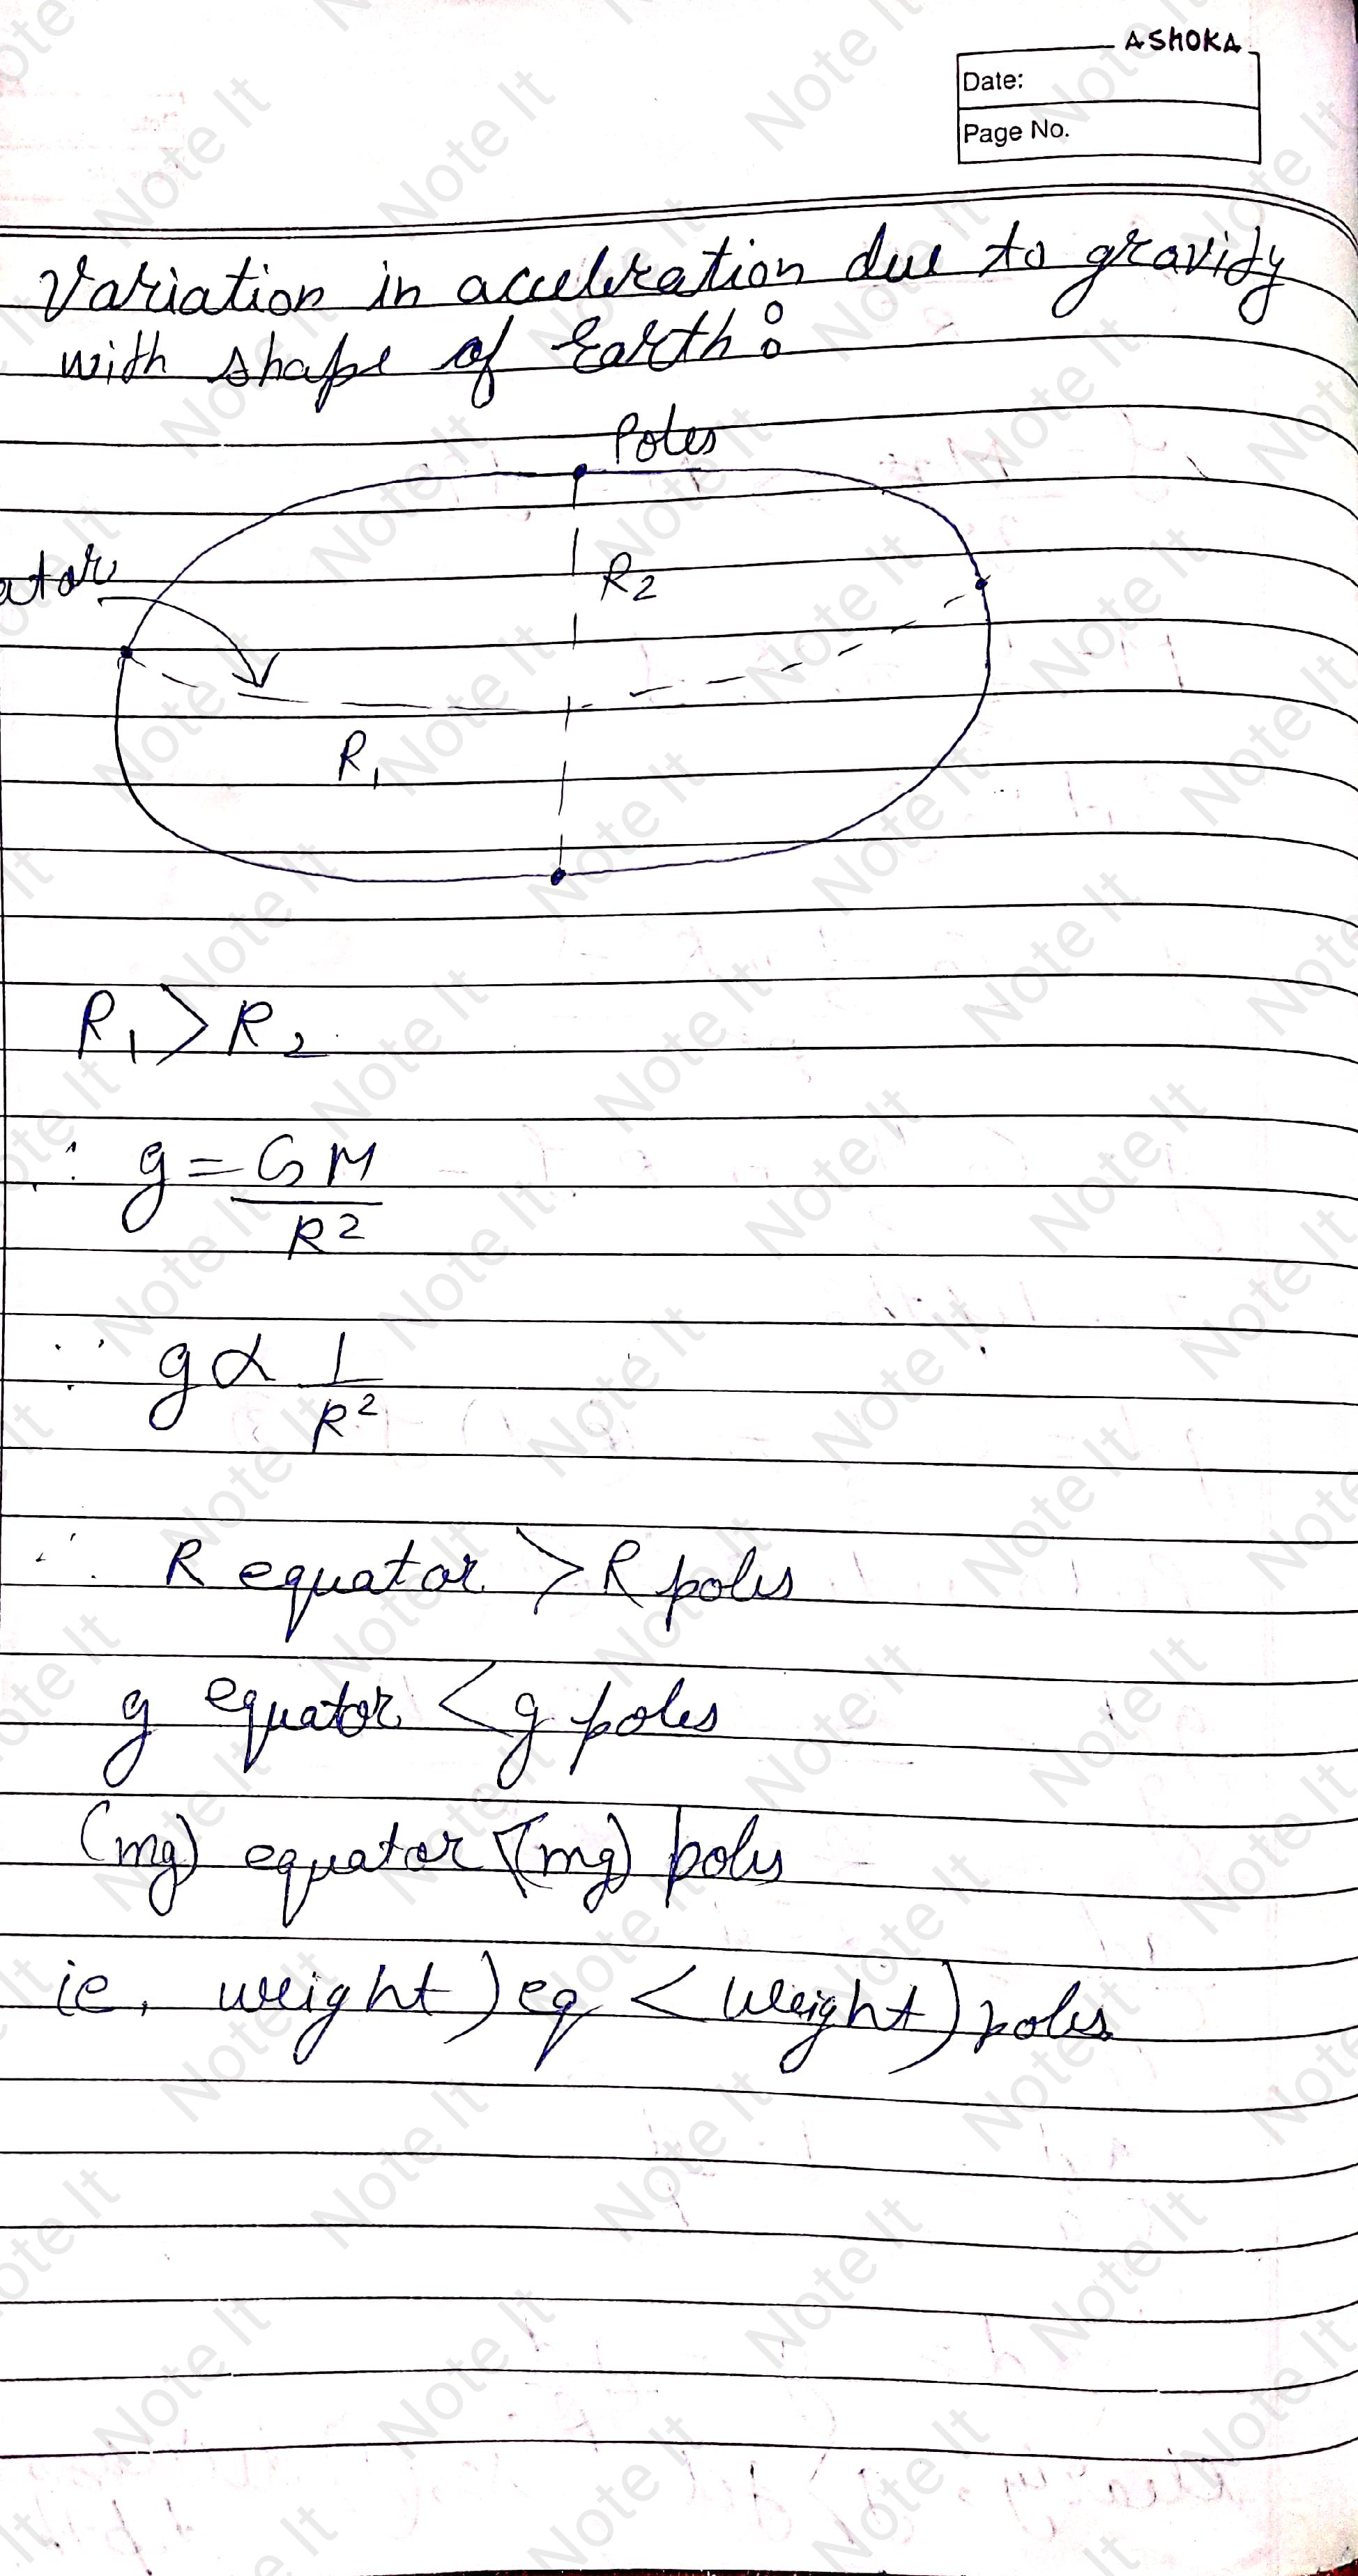 ASHOKA
Date:
Page No.
Variation in acceleration due to gravity
with shape of Earth:
Poles
ator
R2
R1
R1 > R2
∴ g = GM
R²
∵ g ∝ 1
R²
∴ R equator > R poles
g equator < g poles
(mg) equator < (mg) poles
ie, weight) eq < weight) poles
Note It